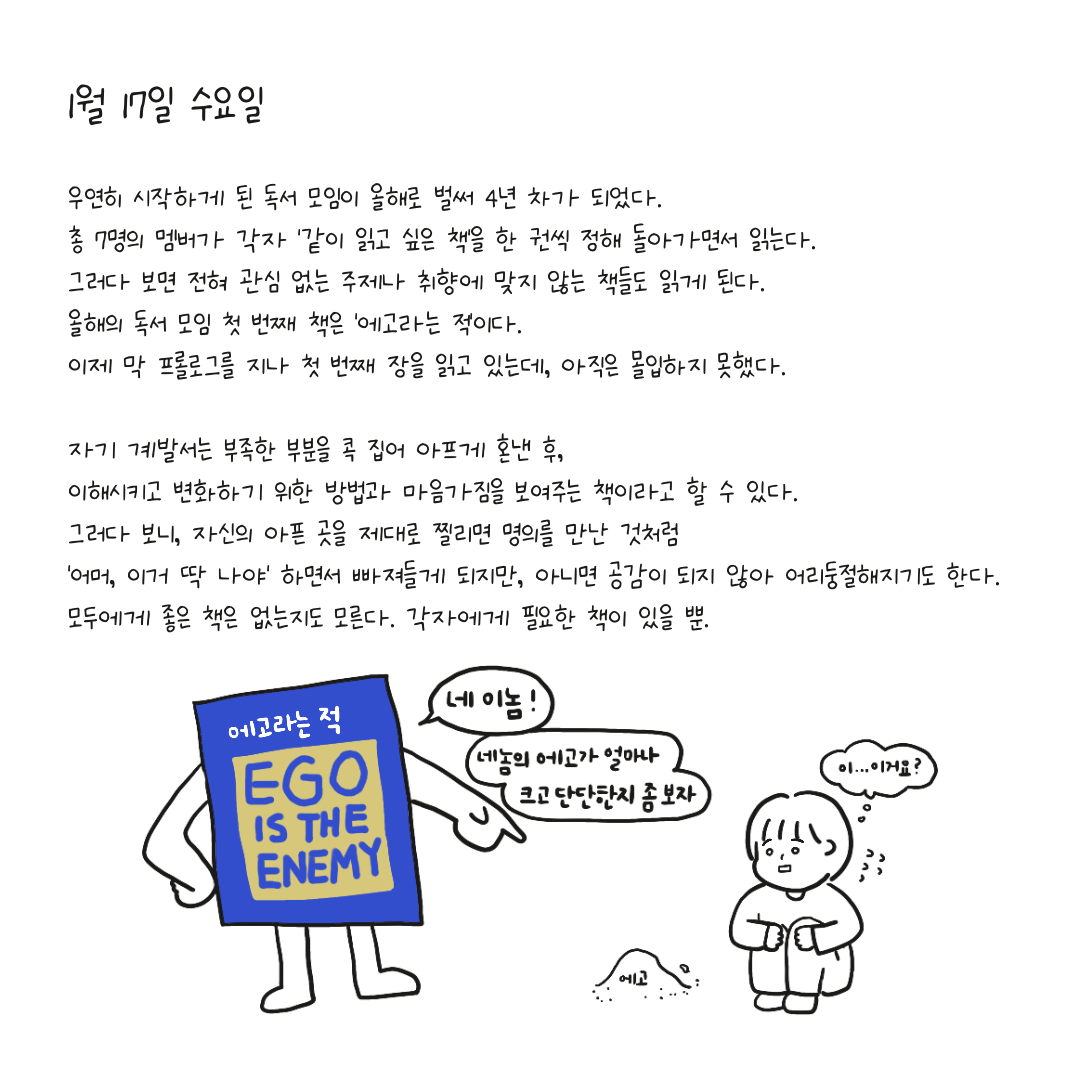 1월 17일 수요일
우연히 시작하게 된 독서 모임이 올해로 벌써 4년 차가 되었다.
총 7명의 멤버가 각자 '같이 읽고 싶은 책'을 한 권씩 정해 돌아가면서 읽는다.
그러다 보면 전혀 관심 없는 주제나 취향에 맞지 않는 책들도 읽게 된다.
올해의 독서 모임 첫 번째 책은 '에고라는 적'이다.
이제 막 프롤로그를 지나 첫 번째 장을 읽고 있는데, 아직은 몰입하지 못했다.
자기 계발서는 부족한 부분을 콕 집어 아프게 혼낸 후,
이해시키고 변화하기 위한 방법과 마음가짐을 보여주는 책이라고 할 수 있다.
그러다 보니, 자신의 아픈 곳을 제대로 찔리면 명의를 만난 것처럼
'어머, 이거 딱 나야' 하면서 빠져들게 되지만, 아니면 공감이 되지 않아 어리둥절해지기도 한다.
모두에게 좋은 책은 없는지도 모른다. 각자에게 필요한 책이 있을 뿐.
네 이놈!
네놈의 에고가 얼마나
크고 단단한지 좀 보자
이...이거요?
에고라는 적
EGO
IS THE
ENEMY
에고